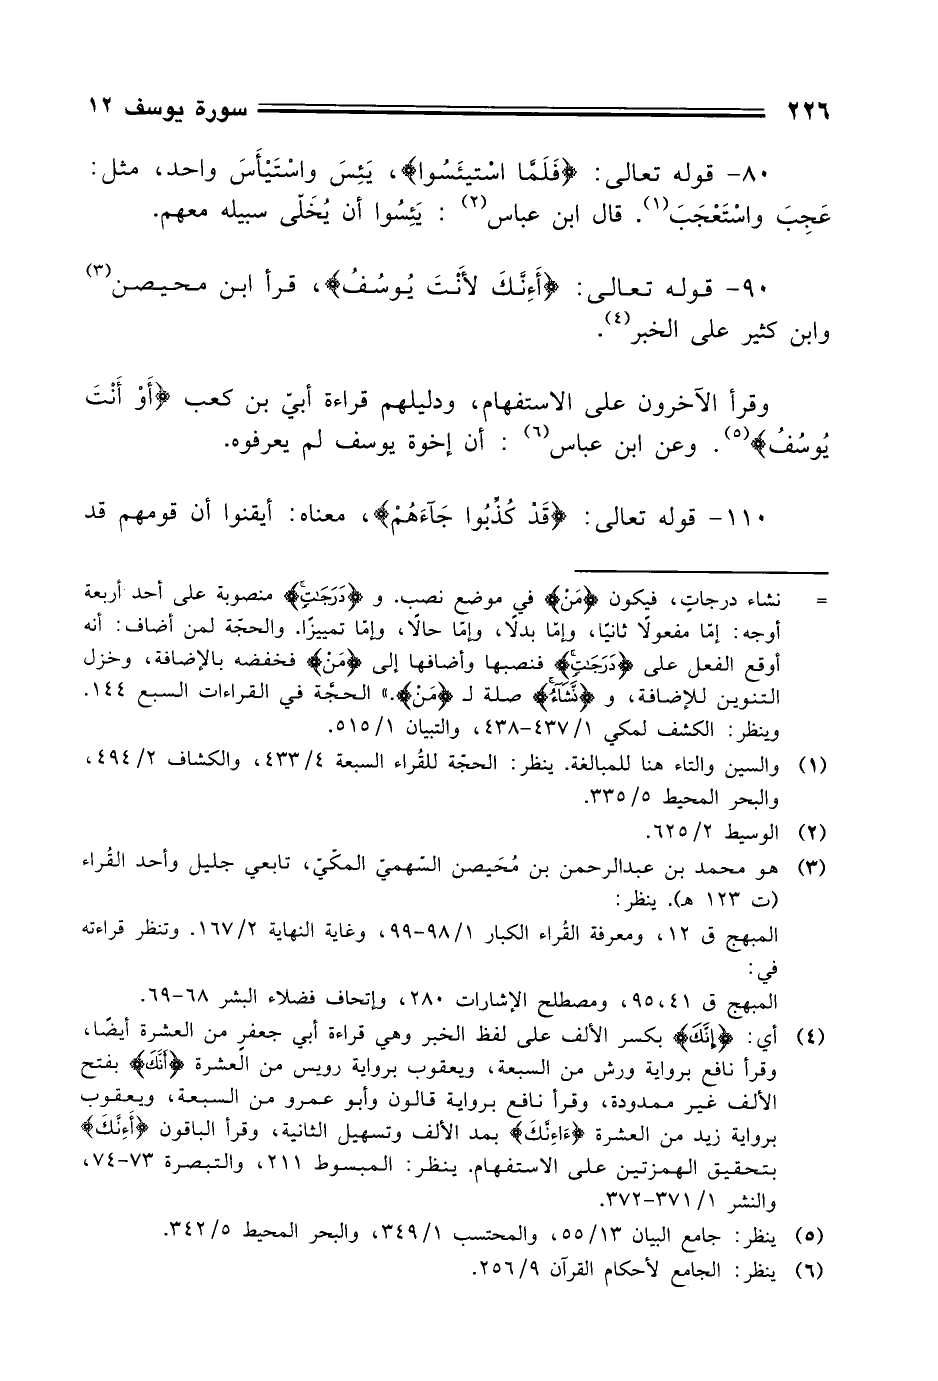 ٢٢٦ سورة يوسف ١٢
٨٠- قوله تعالى: ﴿فَلَمَّا اسْتيئَسُوا﴾، يَئِسَ واسْتَيْأَسَ واحد، مثل:
عَجِبَ واسْتَعْجَبَ(١). قال ابن عباس(٢) : يَئِسُوا أن يُخَلّى سبيله معهم.
٩٠- قوله تعالى: ﴿أَءِنَّكَ لأَنْتَ يُوسُفُ﴾، قرأ ابن محيصن(٣)
وابن كثير على الخبر(٤).
وقرأ الآخرون على الاستفهام، ودليلهم قراءة أبيّ بن كعب ﴿أَوْ أَنْتَ
يُوسُفُ﴾(٥). وعن ابن عباس(٦) : أن إخوة يوسف لم يعرفوه.
١١٠- قوله تعالى: ﴿قَدْ كُذِّبُوا جَآءَهُمْ﴾، معناه: أيقنوا أن قومهم قد
= نشاء درجاتٍ، فيكون ﴿مَنْ﴾ في موضع نصب. و ﴿دَرَجَـٰتٍ﴾ منصوبة على أحد أربعة
أوجه: إمّا مفعولًا ثانيًا، وإمّا بدلًا، وإمّا حالًا، وإمّا تمييزًا. والحجّة لمن أضاف: أنه
أوقع الفعل على ﴿دَرَجَـٰتٍ﴾ فنصبها وأضافها إلى ﴿مَنْ﴾ فخفضه بالإضافة، وخزل
التنوين للإضافة، و ﴿نَّشَآءُ﴾ صلة لـ ﴿مَنْ﴾.» الحجَّة في القراءات السبع ١٤٤.
وينظر: الكشف لمكي ١/ ٤٣٧-٤٣٨، والتبيان ١/ ٥١٥.
(١) والسين والتاء هنا للمبالغة. ينظر: الحجّة للقُراء السبعة ٤/ ٤٣٣، والكشاف ٢/ ٤٩٤،
والبحر المحيط ٥/ ٣٣٥.
(٢) الوسيط ٢/ ٦٢٥.
(٣) هو محمد بن عبدالرحمن بن مُحَيصن السّهميّ المكّيّ، تابعي جليل وأحد القُراء
(ت ١٢٣ هـ). ينظر:
المبهج ق ١٢، ومعرفة القُراء الكبار ١/ ٩٨-٩٩، وغاية النهاية ٢/ ١٦٧. وتنظر قراءته
في:
المبهج ق ٤١،٩٥، ومصطلح الإشارات ٢٨٠، وإتحاف فضلاء البشر ٦٨-٦٩.
(٤) أي: ﴿إِنَّكَ﴾ بكسر الألف على لفظ الخبر وهي قراءة أبي جعفر من العشرة أيضًا،
وقرأ نافع برواية ورش من السبعة، ويعقوب برواية رويس من العشرة ﴿أَنَّكَ﴾ بفتح
الألف غير ممدودة، وقرأ نافع برواية قالون وأبو عمرو من السبعة، ويعقوب
برواية زيد من العشرة ﴿ءَاءِنَّكَ﴾ بمد الألف وتسهيل الثانية، وقرأ الباقون ﴿أَءِنَّكَ﴾
بتحقيق الهمزتين على الاستفهام. ينظر: المبسوط ٢١١، والتبصرة ٧٣-٧٤،
والنشر ١/ ٣٧١-٣٧٢.
(٥) ينظر: جامع البيان ١٣/ ٥٥، والمحتسب ١/ ٣٤٩، والبحر المحيط ٥/ ٣٤٢.
(٦) ينظر: الجامع لأحكام القرآن ٩/ ٢٥٦.